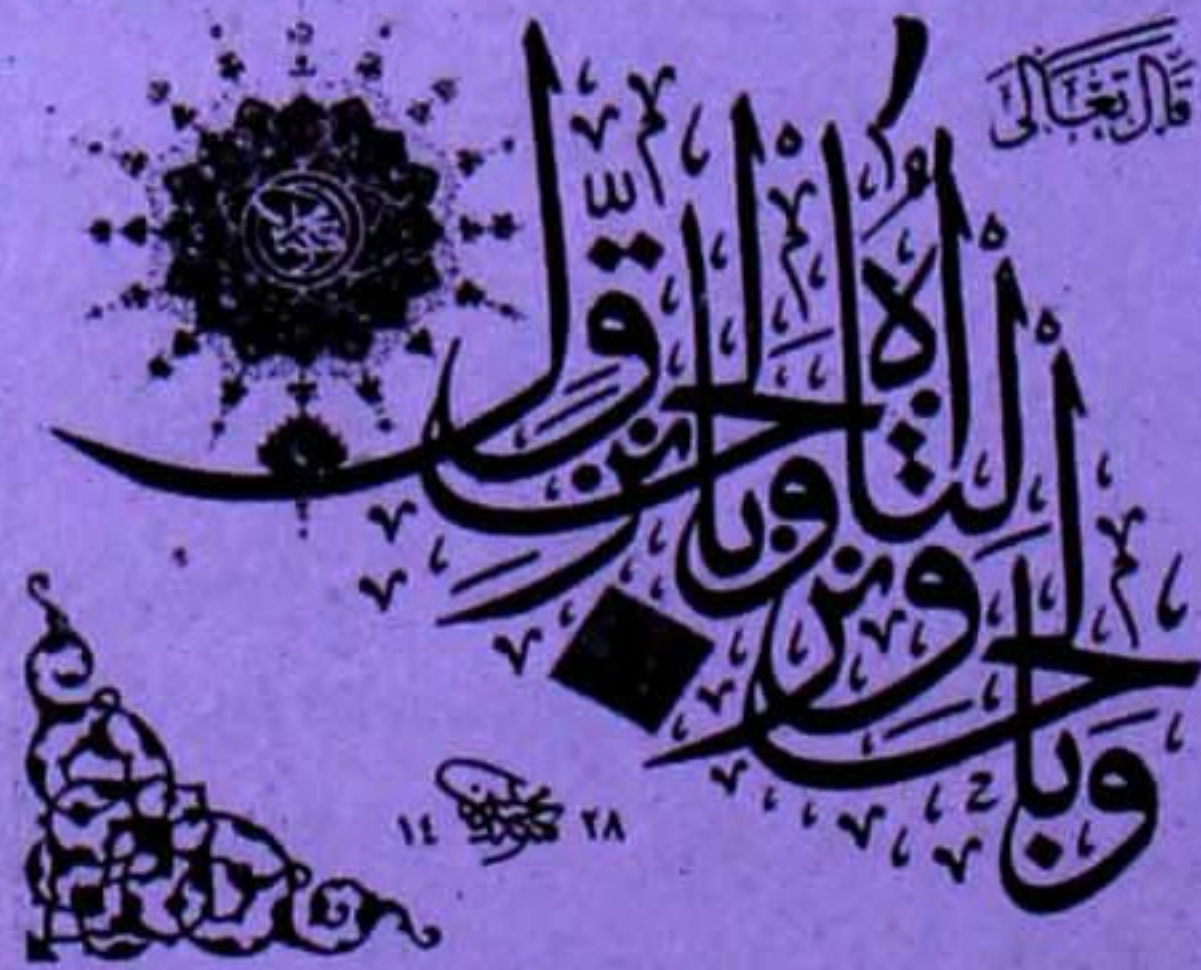 قَالَ تَعَالَى
وَبِالْحَقِّ أَنْزَلْنَاهُ وَبِالْحَقِّ نَزَلَ
١٤ ٢٨